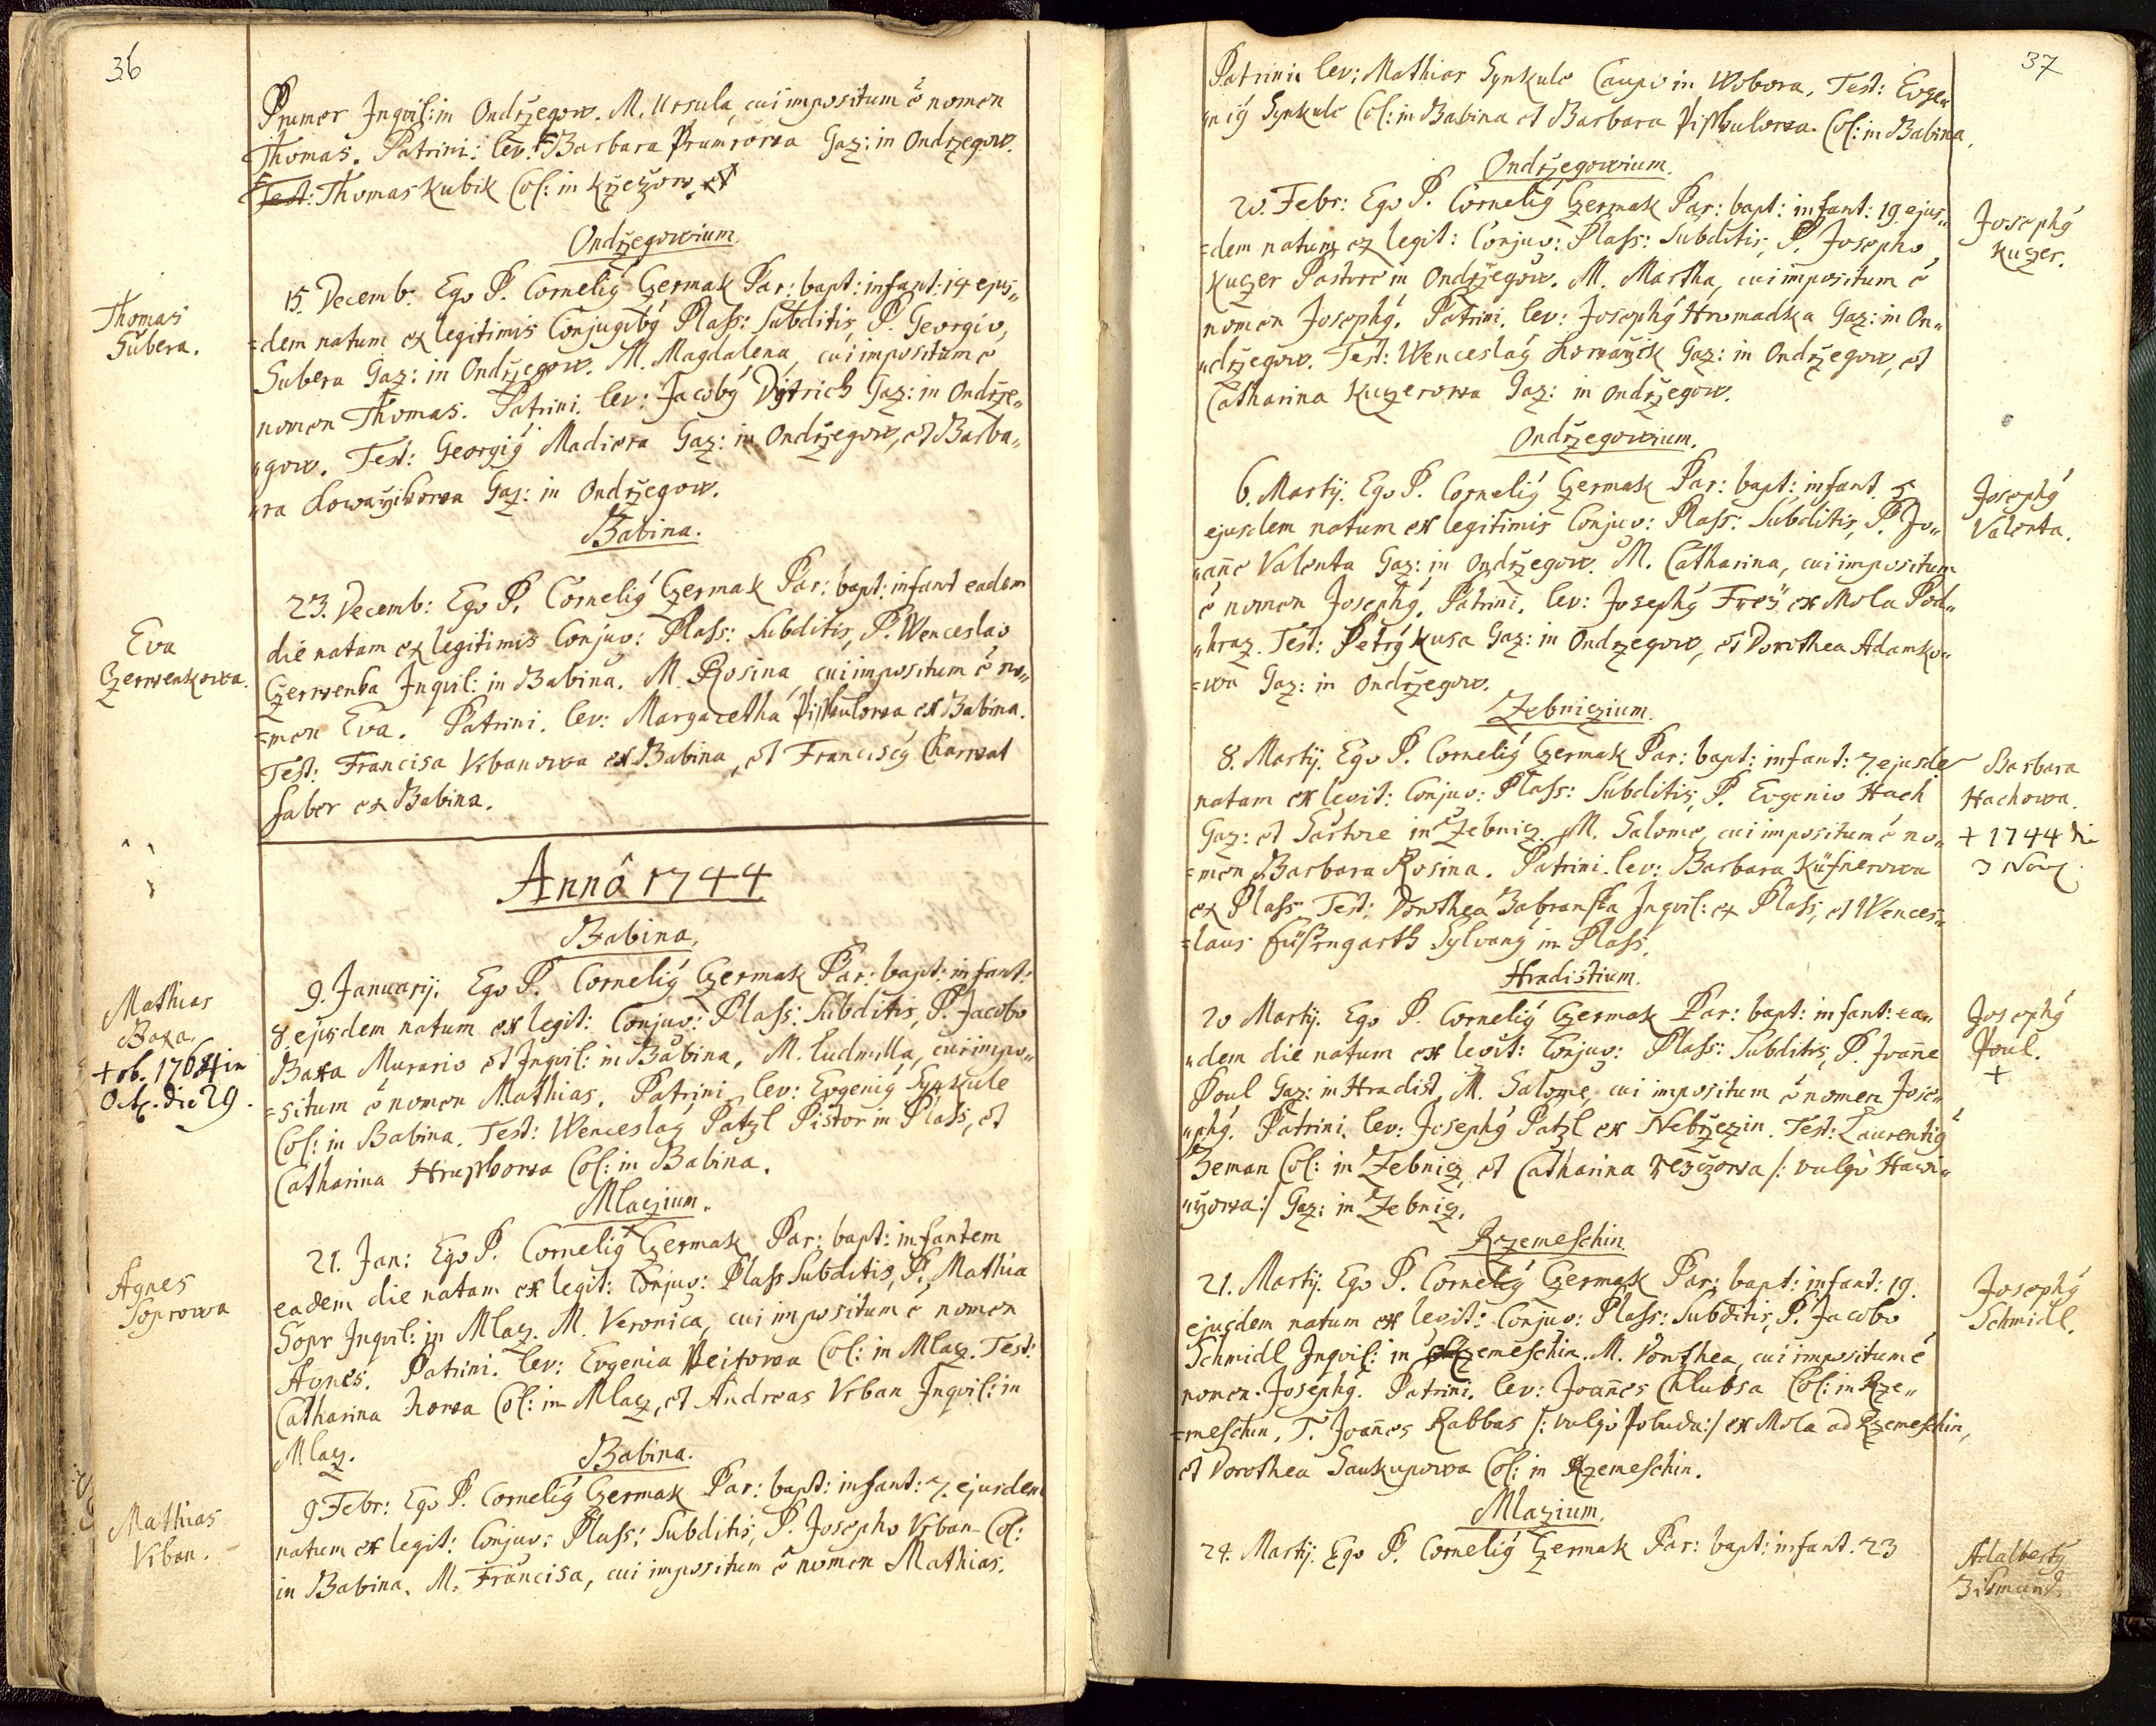 36
Prumer Inqvil: in Ondržegow. M. Ursula, cui impositum ē nomen
Thomas. Patrini: lev: Barbara Prumrowa Gaz: in Ondržegow.
Test: Thomas Kubik Col: in Kržežow et
Ondržegowium
Thomas
Subera.
15. Decemb. Ego P. Cornelig Czermak Par: bapt: infant: 14 ejus„
=dem natum ex legitimis Conjugibg Plass: Subditis, P. Georgio,
Subera Gaz: in Ondržegow. M. Magdalena, cui impositum ē
nomen Thomas. Patrini. lev: Jacobg Dytrich Gaz: in Ondrže„
„gow. Test: Georgig Madiera Gaz: in Ondržegow, et Barba„
„ra Gaz: in Ondržegow.
Babina.
Eva
Czerwenkowa.
23. Decemb: Ego P. Cornelig Czermak Par: bapt: infant eadem
die natam ex legitimis Conjuv: Plass: Subditis, P. Wenceslao
Czerwenka Inqvil: in Babina. M. Rosina, cui impositum ē no„
=men Eva. Patrini. lev: Margaretha Pisskulowa ex Babina.
Test: Francisa Vrbanowa ex Babina, et Franciscg Charwat
faber ex Babina.
Annô 1744
Babina.
Mathias
Baxa.
+ ob. 1764 in
Octb. die 29.
9. Januarij. Ego P. Cornelig Czermak Par: bapt: infant:
8 ejusdem natum ex legit: Conjuv: Plass: Subditis, P. Jacobo
Baxa Murario et Inqvil: in Babina, M. Ludmilla, cui impo„
=situm ē nomen Mathias. Patrini lev: Evgenig Synkule
Col: in Babina. Test: Wenceslag Patzl Pistor in Plass, et
Catharina Hrusskowa Col: in Babina.
Mlaczium.
Agnes
Soprowa
21. Jan: Ego P. Cornelig Czermak Par: bapt: infantem
eadem die natam ex legit: Conjuv: Plass Subditis, P. Mathia
Sopr Inqvil: in Mlacz. M. Veronica, cui impositum ē nomen
Agnes. Patrini. lev: Evgenia Col: in Mlacz. Test:
Catharina Col: in Mlacz, et Andreas Vrban Inqvil: in
Mlacz.
Babina.
Mathias
Vrban.
9 Febr: Ego P. Cornelig Czermak Par: bapt: infant: 7. ejusdem
natum ex legit: Conjuv: Plass: Subditis, P. Josepho Vrban Col:
in Babina. M. Francisa, cui impositum ē nomen Mathias.
37
Patrini lev: Mathias Synkule Caupo in Wobora. Test: Evge„
„nig Synkule Col: in Babina et Barbara Pisskulowa. Col: in Babina.
Ondržegowium.
Josephg
Kuczer.
20. Febr: Ego P. Cornelig Czermak Par: bapt: infant: 19. ejus„
=dem natum ex legit: Conjuv: Plass: Subditis, P. Josepho
Kuczer Pastore in Ondržegow. M. Martha, cui impositum ē
nomen Josephg. Patrini. lev: Josephg Hromadka Gaz: in On„
„držegow. Test: Wenceslag Gaz: in Ondržegow, et
Catharina Kuczerowa Gaz: in Ondržegow.
Ondržegowium.
Josephg
Valenta.
6. Martij. Ego P. Cornelig Czermak Par: bapt: infant. 5
ejusdem natum ex legitimis Conjuv: Plass: Subditis, P. Jo„
„añe Valenta Gaz: in Ondržegow. M. Catharina, cui impositum
ē nomen Josephg. Patrini. lev: Josephg Freÿ ex Mola Pod„
„hraz. Test: Petrg Kusa Gaz: in Ondržegow, et Dorothea Adamko„
=wa Gaz: in Ondržegow.
Zebniczium.
Barbara
Hachowa.
+ 1744 die
3 Nov.
8. Martij. Ego P. Cornelig Czermak Par: bapt: infant: 7. ejusde
natam ex legit: Conjuv: Plass: Subditis, P. Evgenio Hach
Gaz: et Sartore in Zebnicz. M. Salome, cui impositum ē no„
=men Barbara Rosina. Patrini. lev: Barbara Küfnerowa
ex Plass. Test: Dorothea Babranska Inqvil: ex Plass, et Wences„
=laus Sylvang in Plass.
Hradistium.
Josephg
Poul.
+
20 Martij. Ego P. Cornelig Czermak Par: bapt: infant: ea„
„dem die natum ex legit: Conjuv: Plass: Subditis, P. Joañe
Poul Gaz: in Hradist. M. Salome, cui impositum ē nomen Jose„
„phg. Patrini. lev: Josephg Patzl ex Nebržezin. Test: Laurentig
Zeman Col: in Zebnicz, et Catharina /: vulgo Hawi„
:/ Gaz: in Zebnicz.
Rzemeschin.
Josephg
Schmidl.
21. Martij. Ego P. Cornelig Czermak Par: bapt: infant: 19.
ejusdem natum ex legit: Conjuv: Plass: Subditis, P. Jacobo
Schmidl Inqvil: in Rzemeschin. M. Dorothea, cui impositum ē
nomen Josephg. Patrini. lev: Joañes Chlubsa Col: in Rze„
=meschin. T. Joañes Rabbas /: vulgo Pobuda :/ ex Mola ad Rzemeschin,
et Dorothea Saukupowa Col: in Rzemeschin.
Mlazium.
Adalbertg
Zikmund.
24. Martij. Ego P. Cornelig Czermak Par: bapt: infant. 23